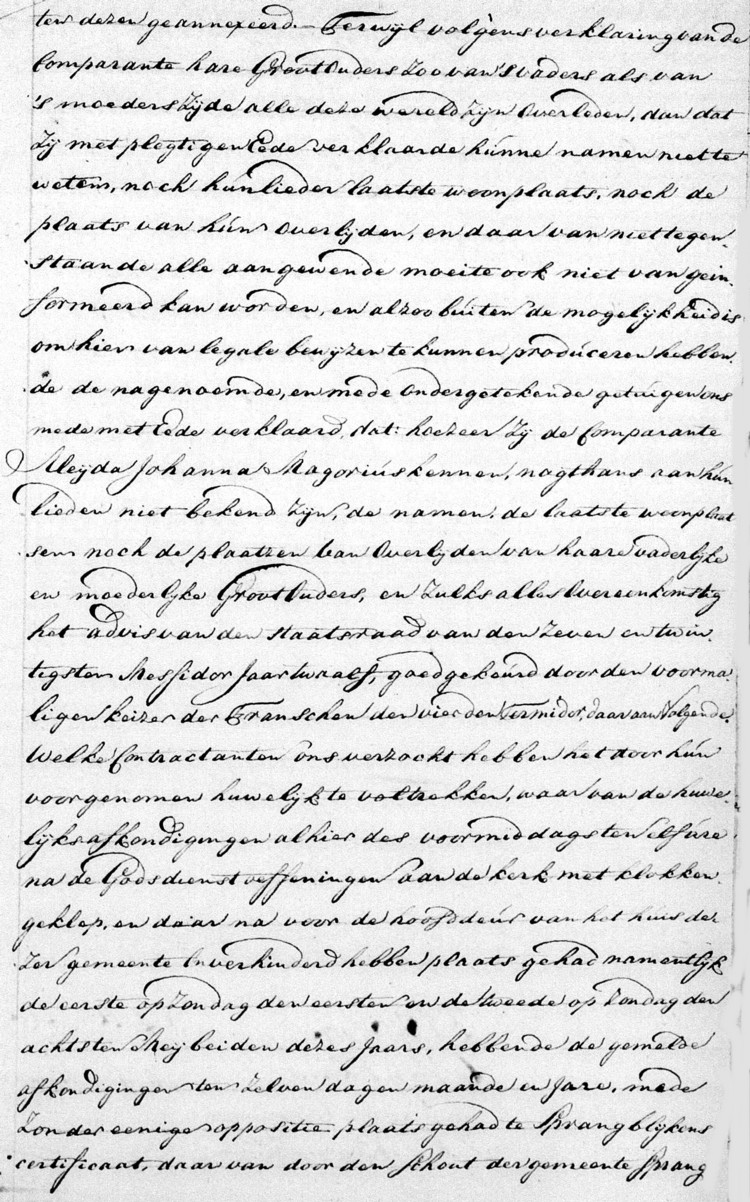 ten dezen geannexeerd. - Terwyl volgens verklaring van de
Comparante hare GrootOuders zoo van 's vaders als van
's moeders zyde alle deze wereld zyn Overleden, dan dat
zy met plegtigen Eede verklaarde hunne namen niet te
weten, noch hunlieder laatste woonplaats, noch de
plaats van hun Overlyden, en daar van niet tegen„
staande alle aangewende moeite ook niet van gein„
formeerd kan worden, en alzoo buiten de mogelykheid is
om hier van legale bewyzen te kunnen produceren hebben„
de de nagenoemde, en mede Ondergetekende getuigen ons
mede met Eede verklaard, dat: hoezeer zy de Comparante
Aleyda Johanna Magorius kennen, nogthans aan hun
lieden niet bekend zyn, de namen, de laatste woonplaat
sen noch de plaatzen van Overlyden van haare vaderlyke
en moederlyke GrootOuders, en zulks alles Overeenkomstig
het advis van den staatsraad van den zeven en twin„
tigsten Messidor Jaar twaalf, goedgekeurd door den voorma„
ligen keizer der Franschen den vierden Termidor, daar aan Volgende.
Welke Contractanten ons verzocht hebben het door hun
voorgenomen huwelyk te voltrekken, waar van de huwe„
lyks afkondigingen alhier des voormiddags ten elf ure
na de Godsdienst oeffeningen aan de kerk met klokken„
geklep, en daar na voor de hoofddeur van het huis de„
zer gemeente Onverhinderd hebben plaats gehad namentlyk
de eerste op Zondag den eersten en de tweede op Zondag den
achtsten Mey beiden dezes Jaars, hebbende de gemelde
afkondigingen ten zelven dagen maande en Jare, mede
zonder eenige oppositie plaats gehad te Sprang blykens
certificaat, daar van door den Schout der gemeente Sprang